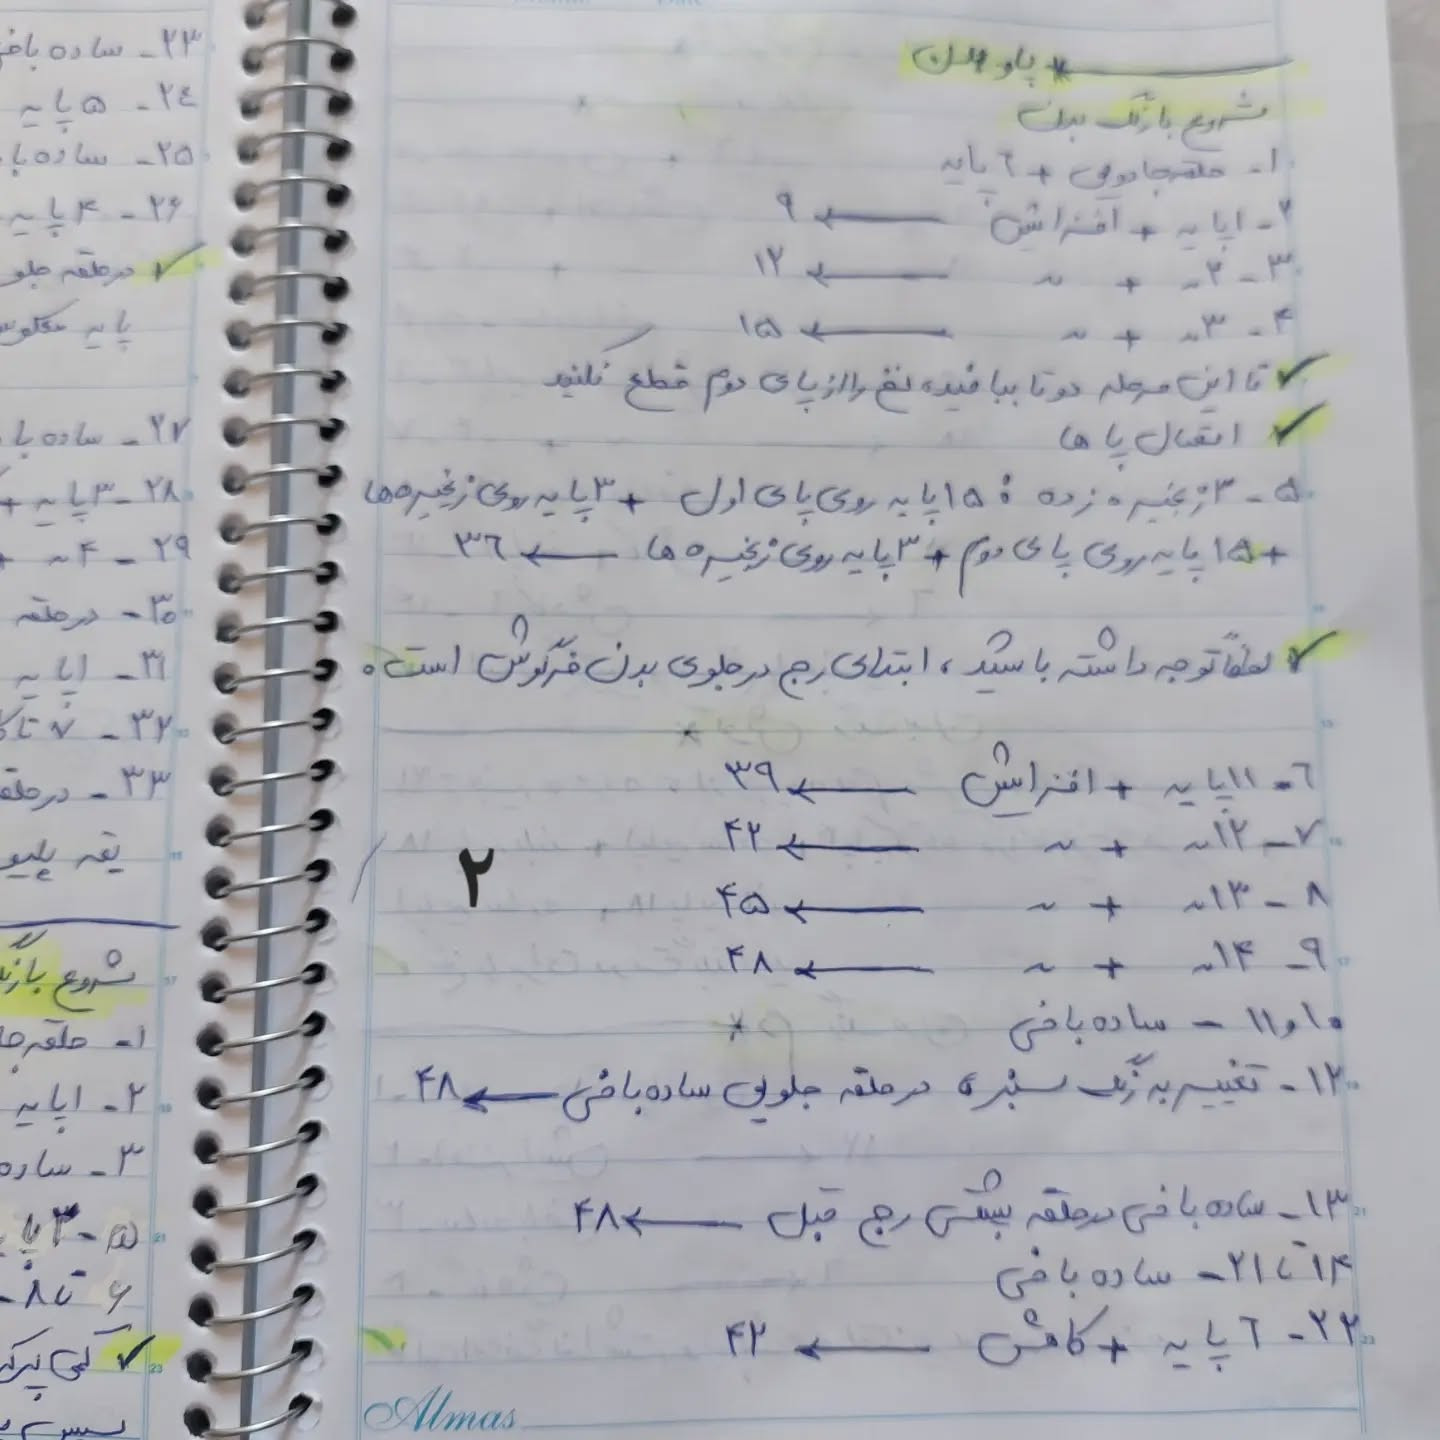 * پا و بدن
شروع با رنگ بدن
۱- حلقه جادویی + ٦ پایه
۲- ۱پایه + افزایش ← ۹
۳- ۲~ + ~ ← ۱۲
۴- ۳~ + ~ ← ۱۵
✓ تا این مرحله دو تا ببافید، نخ را از پای دوم قطع نکنید
✓ اتصال پا ها
۵- ۳زنجیره زده ؛ ۱۵پایه روی پای اول + ۳پایه روی زنجیره ها
+ ۱۵ پایه روی پای دوم + ۳پایه روی زنجیره ها ← ۳٦
✓ لطفاً توجه داشته باشید، ابتدای رج در جلوی بدن خرگوش است.
٦- ۱۱پایه + افزایش ← ۳۹
۷- ۱۲~ + ~ ← ۴۲
۸- ۱۳~ + ~ ← ۴۵
۹- ۱۴~ + ~ ← ۴۸
۱۰و۱۱ - ساده بافی
۱۲- تغییر به رنگ سبز، در حلقه جلویی ساده بافی ← ۴۸
۱۳- ساده بافی در حلقه پشتی رج قبل ← ۴۸
۱۴ تا ۲۱- ساده بافی
۲۲- ٦ پایه + کاهش ← ۴۲
۲
Almas
۲۳- ساده باف
۲٤- ۵ پایه
۲۵- ساده با
۲۶- ۴ پایه
✓ در حلقه جلو
پایه معکوس
۲۷- ساده با
۲۸- ۳ پایه +
۲۹- ۴~ +
۳۰- در حلقه
۳۱- ۱پایه
۳۲- ۷ تا
۳۳- در حلقه
یقه پلیو
شروع با رنگ
۱- حلقه جا
۲- ۱پایه
۳- ساده
۵- ۳ پا
۶ تا ۸-
✓ کمی پر ک
سپس